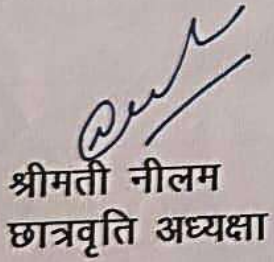 श्रीमती नीलम
छात्रवृति अध्यक्षा